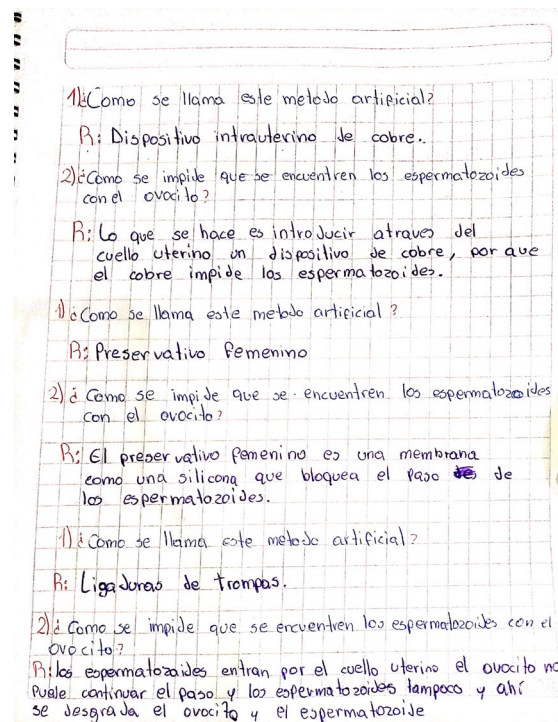 1)¿Como se llama este metodo artificial?
R: Dispositivo intrauterino de cobre.
2)¿Como se impide que se encuentren los espermatozoides
con el ovocito?
R: Lo que se hace es introducir atraves del
cuello uterino un dispositivo de cobre, por que
el cobre impide los espermatozoides.
1)¿Como se llama este metodo artificial?
R: Preservativo femenino
2)¿Como se impide que se encuentren los espermatozoides
con el ovocito?
R: El preservativo femenino es una membrana
como una silicona que bloquea el paso de
los espermatozoides.
1)¿Como se llama este metodo artificial?
R: Ligaduras de trompas.
2)¿Como se impide que se encuentren los espermatozoides con el
ovocito?
R: los espermatozoides entran por el cuello uterino el ovocito no
puede continuar el paso y los espermatozoides tampoco y ahí
se desgrada el ovocito y el espermatozoide